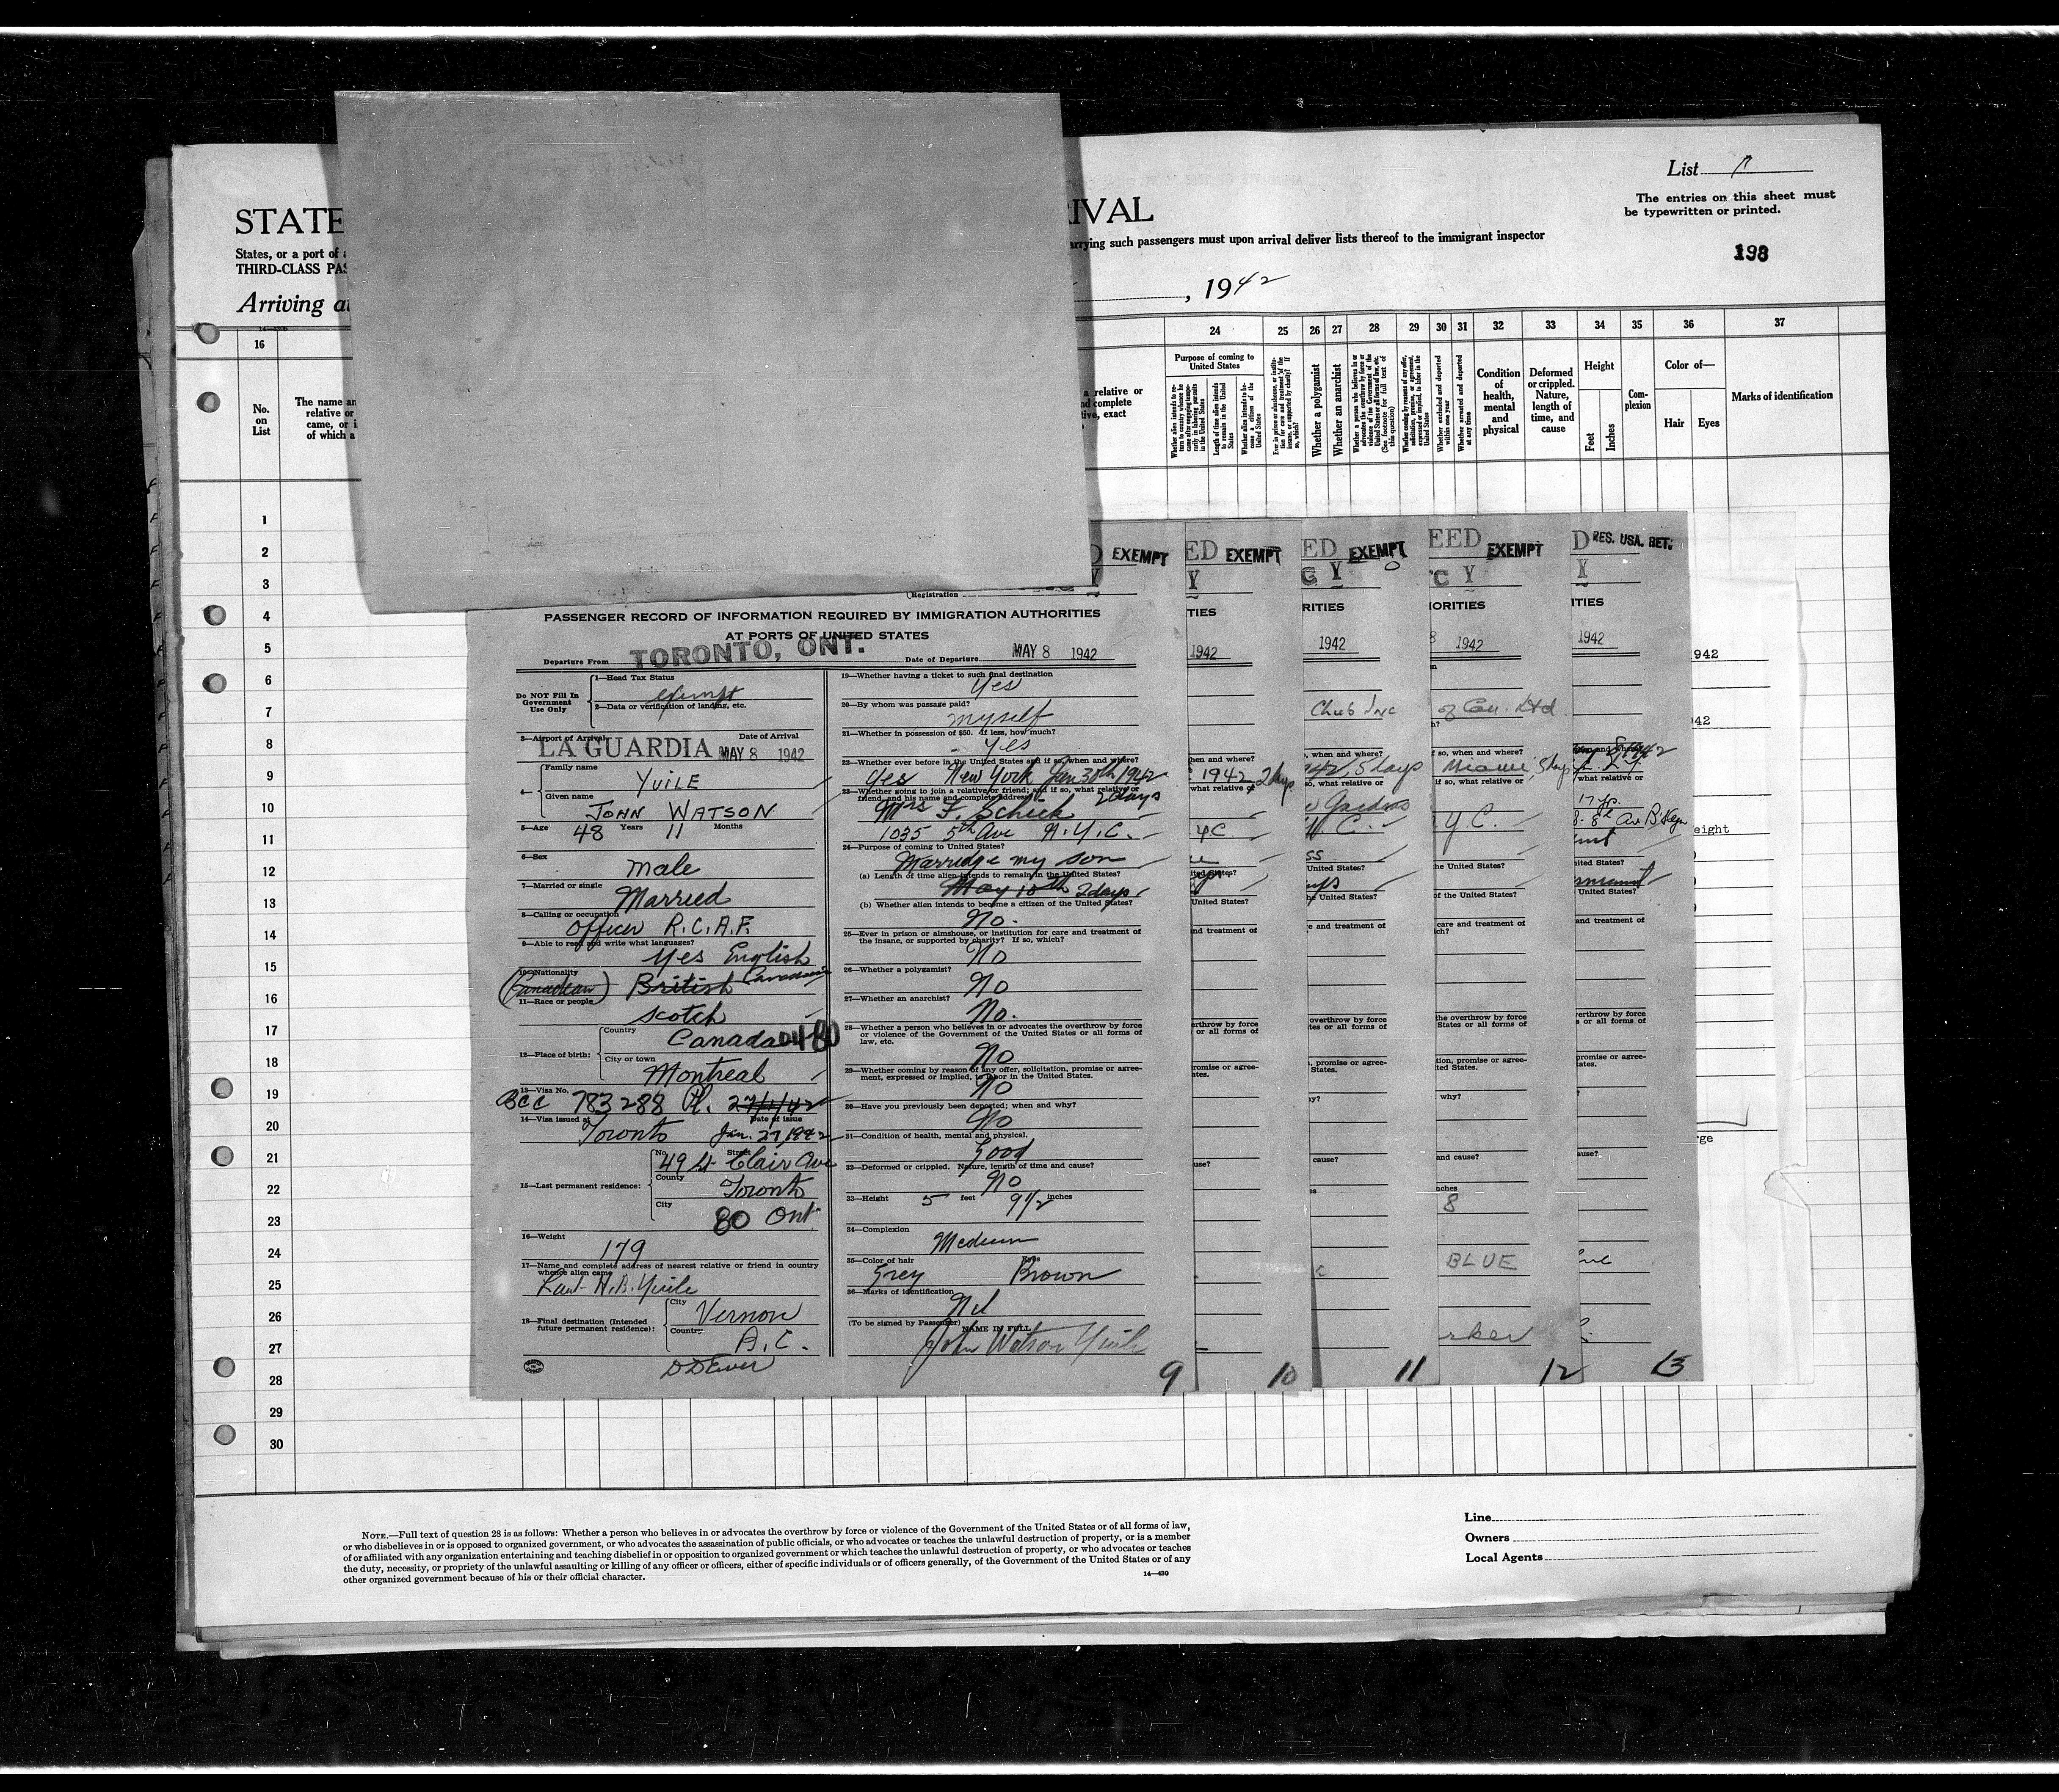 List
STATE
RIVAL
The entries on this sheet must
be typewritten or printed.
States, or a port of
arrying such passengers must upon arrival deliver lists thereof to the immigrant inspector
THIRD-CLASS PAS
198
Arriving at
, 1942
16
24 25 26 27 28 29 30 31 32 33 34 35 36 37
No.
on
List
The name an
relative or
came, or i
of which a
a relative or
nd complete
tive, exact
Purpose of coming to
United States
Whether a polygamist
Whether an anarchist
Condition
of
health,
mental
and
physical
Deformed
or crippled.
Nature,
length of
time, and
cause
Height
Feet
Inches
Com-
plexion
Color of—
Hair
Eyes
Marks of identification
1
2
3
4
5
6
7
8
9
10
11
12
13
14
15
16
17
18
19
20
21
22
23
24
25
26
27
28
29
30
Registration
PASSENGER RECORD OF INFORMATION REQUIRED BY IMMIGRATION AUTHORITIES
AT PORTS OF UNITED STATES
Departure From TORONTO, ONT. Date of Departure MAY 8 1942
Do NOT Fill In
Government
Use Only
1—Head Tax Status
exempt
2—Data or verification of landing, etc.
3—Airport of Arrival Date of Arrival
LA GUARDIA MAY 8 1942
4— Family name
YUILE
Given name
JOHN WATSON
5—Age 48 Years 11 Months
6—Sex
Male
7—Married or single
Married
8—Calling or occupation
Officer R.C.A.F.
9—Able to read and write what languages?
Yes English
10—Nationality
(Canadian) British Canadian
11—Race or people
Scotch
12—Place of birth: Country
Canada 0480
City or town
Montreal
13—Visa No.
BCC 783288 Pl. 27/1/42
14—Visa issued at Date of issue
Toronto Jan. 27, 1942
15—Last permanent residence: No. Street
49 St Clair Ave
County
Toronto
City
80 Ont.
16—Weight
179
17—Name and complete address of nearest relative or friend in country
whence alien came
Yuile
18—Final destination (Intended
future permanent residence): City
Vernon
Country
B.C.
19—Whether having a ticket to such final destination
Yes
20—By whom was passage paid?
myself
21—Whether in possession of $50. If less, how much?
Yes
22—Whether ever before in the United States and if so, when and where?
Yes New York Jan 30th 1942
2 days
23—Whether going to join a relative or friend; and if so, what relative or
friend, and his name and complete address
Mrs F. Scheck
1035 5th Ave N.Y.C.
24—Purpose of coming to United States?
Marridge my son
(a) Length of time alien intends to remain in the United States?
May 10th 2 days
(b) Whether alien intends to become a citizen of the United States?
No.
25—Ever in prison or almshouse, or institution for care and treatment of
the insane, or supported by charity? If so, which?
No
26—Whether a polygamist?
No
27—Whether an anarchist?
No.
28—Whether a person who believes in or advocates the overthrow by force
or violence of the Government of the United States or all forms of
law, etc.
No
29—Whether coming by reason of any offer, solicitation, promise or agree-
ment, expressed or implied, to labor in the United States.
No
30—Have you previously been deported; when and why?
No
31—Condition of health, mental and physical.
Good
32—Deformed or crippled. Nature, length of time and cause?
No
33—Height 5 feet 9 1/2 inches
34—Complexion
Medium
35—Color of hair Eyes
Grey Brown
36—Marks of identification
Nil
(To be signed by Passenger)
NAME IN FULL
John Watson Yuile
9
EXEMPT
ED EXEMPT
Y
TIES
1942
1942 2 days
10
ED EXEMPT
C Y
RITIES
1942
Club Inc
5 days
Gardens
11
EED EXEMPT
C Y
IORITIES
1942
of Can. Ltd
Miami, 5 days
Y.C.
8
BLUE
rker
12
D RES. USA. RET.
ITIES
1942
17 yr.
13
942
942
eight
rge
NOTE.—Full text of question 28 is as follows: Whether a person who believes in or advocates the overthrow by force or violence of the Government of the United States or of all forms of law,
or who disbelieves in or is opposed to organized government, or who advocates the assassination of public officials, or who advocates or teaches the unlawful destruction of property, or is a member
of or affiliated with any organization entertaining and teaching disbelief in or opposition to organized government or which teaches the unlawful destruction of property, or who advocates or teaches
the duty, necessity, or propriety of the unlawful assaulting or killing of any officer or officers, either of specific individuals or of officers generally, of the Government of the United States or of any
other organized government because of his or their official character.
14—430
Line
Owners
Local Agents